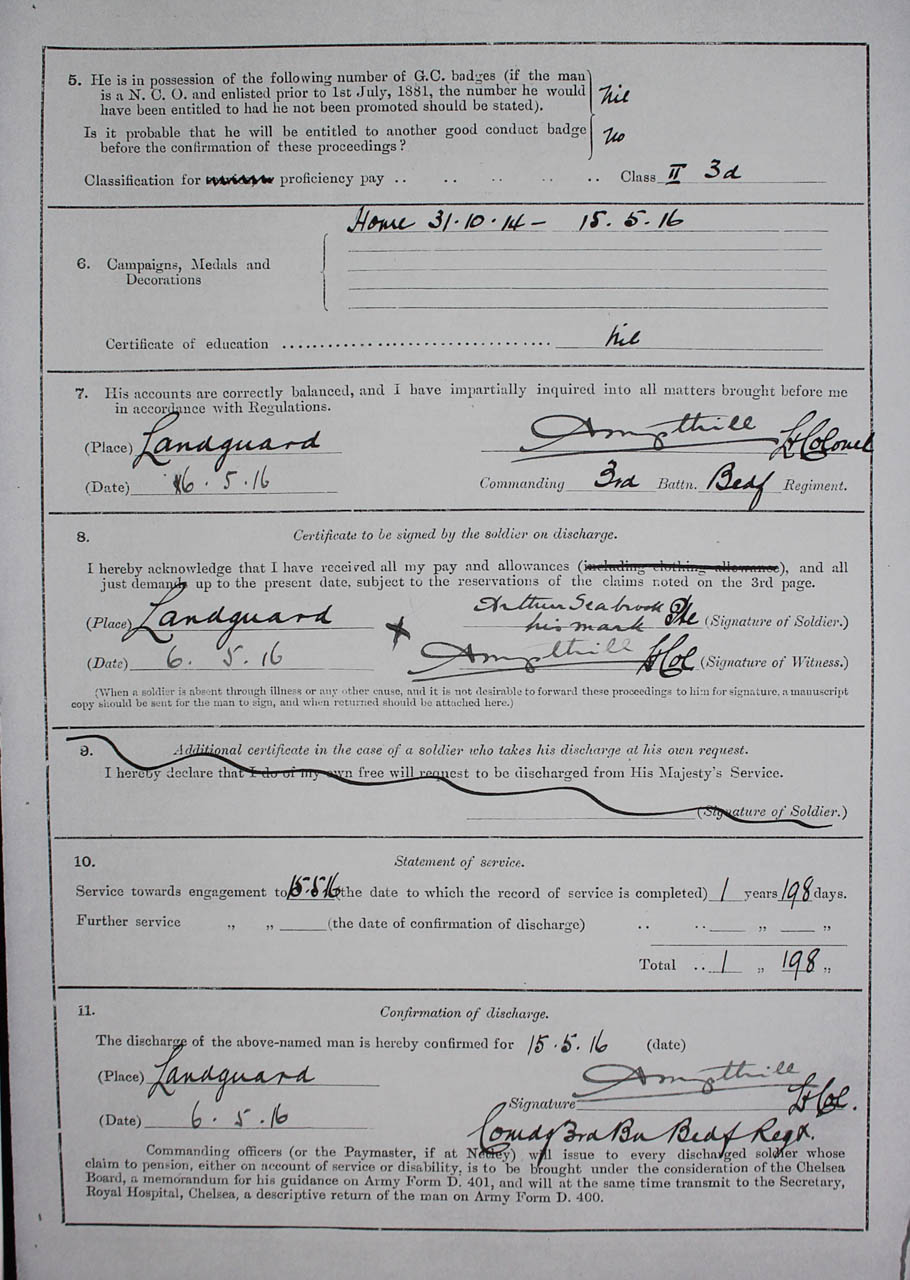 5. He is in possession of the following number of G.C. badges (if the man
is a N. C. O. and enlisted prior to 1st July, 1881, the number he would
have been entitled to had he not been promoted should be stated).
Nil
Is it probable that he will be entitled to another good conduct badge
before the confirmation of these proceedings?
No
Classification for proficiency pay .. .. .. .. .. Class II 3d
Home 31·10·14 – 15.5.16
6. Campaigns, Medals and
Decorations
Certificate of education .......................................... Nil
7. His accounts are correctly balanced, and I have impartially inquired into all matters brought before me
in accordance with Regulations.
(Place) Landguard Ampthill Lt Colonel
(Date) 6.5.16 Commanding 3rd Battn. Bedf Regiment.
8. Certificate to be signed by the soldier on discharge.
I hereby acknowledge that I have received all my pay and allowances (including clothing allowance), and all
just demands up to the present date, subject to the reservations of the claims noted on the 3rd page.
Arthur Seabrook
(Place) Landguard his mark (Signature of Soldier.)
(Date) 6. 5.16 Ampthill Lt Col (Signature of Witness.)
(When a soldier is absent through illness or any other cause, and it is not desirable to forward these proceedings to him for signature, a manuscript
copy should be sent for the man to sign, and when returned should be attached here.)
9. Additional certificate in the case of a soldier who takes his discharge at his own request.
I hereby declare that I do of my own free will request to be discharged from His Majesty's Service.
(Signature of Soldier.)
10. Statement of service.
Service towards engagement to 15.5.16 (the date to which the record of service is completed) 1 years 198 days.
Further service „ „ (the date of confirmation of discharge) .. .. „ „
Total .. 1 „ 198 „
11. Confirmation of discharge.
The discharge of the above-named man is hereby confirmed for 15.5.16 (date)
(Place) Landguard Ampthill
Signature Lt Col.
(Date) 6.5.16
Comdg 3rd Bn Bedf Regt.
Commanding officers (or the Paymaster, if at Netley) will issue to every discharged soldier whose
claim to pension, either on account of service or disability, is to be brought under the consideration of the Chelsea
Board, a memorandum for his guidance on Army Form D. 401, and will at the same time transmit to the Secretary,
Royal Hospital, Chelsea, a descriptive return of the man on Army Form D. 400.